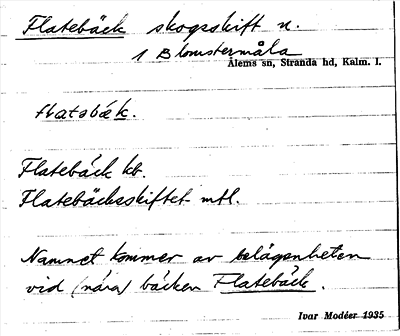 Flatebäck skogsskift n.
1 Blomstermåla
Ålems sn, Stranda hd, Kalm. l.
flatabäk.
Flatebäck kb.
Flatebäcksskiftet mtl.
Namnet kommer av belägenheten
vid (nära) bäcken Flatebäck.
Ivar Modéer 1935